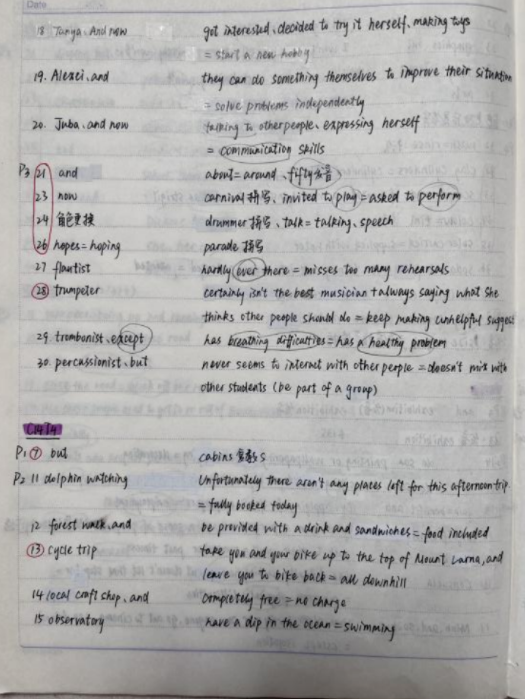 Date
18 Tanya. And now got interested, decided to try it herself, making toys
= start a new hobby
19. Alexei, and they can do something themselves to improve their situation
= solve problems independently
20. Juba, and now talking to other people, expressing herself
= communication skills
P3 21 and about = around, fifty
23 now carnival 拼写, invited to play = asked to perform
24 角色更换 drummer 拼写, talk = talking, speech
26 hopes = hoping parade 拼写
27 flautist hardly ever there = misses too many rehearsals
28 trumpeter certainly isn't the best musician + always saying what she
thinks other people should do = keep making unhelpful suggest
29. trombonist, except has breathing difficulties = has a healthy problem
30. percussionist, but never seems to interact with other people = doesn't mix with
other students (be part of a group)
C14T4
P1 7 but cabins 复数 s
P2 11 dolphin watching Unfortunately there aren't any places left for this afternoon trip
= fully booked today
12 forest walk, and be provided with a drink and sandwiches = food included
13 cycle trip take you and your bike up to the top of Mount Larna, and
leave you to bike back = all downhill
14 local craft shop, and completely free = no charge
15 observatory have a dip in the ocean = swimming